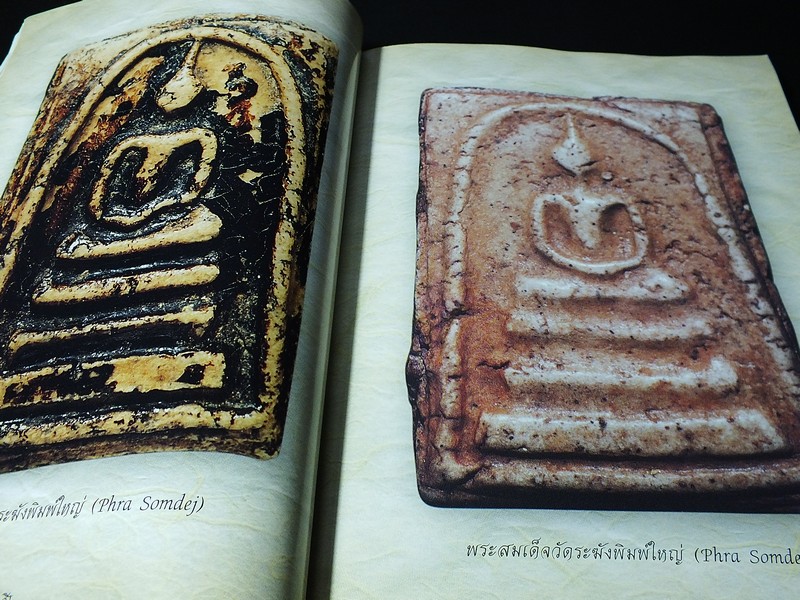 ระฆังพิมพ์ใหญ่ (Phra Somdej)
พระสมเด็จวัดระฆังพิมพ์ใหญ่ (Phra Somde